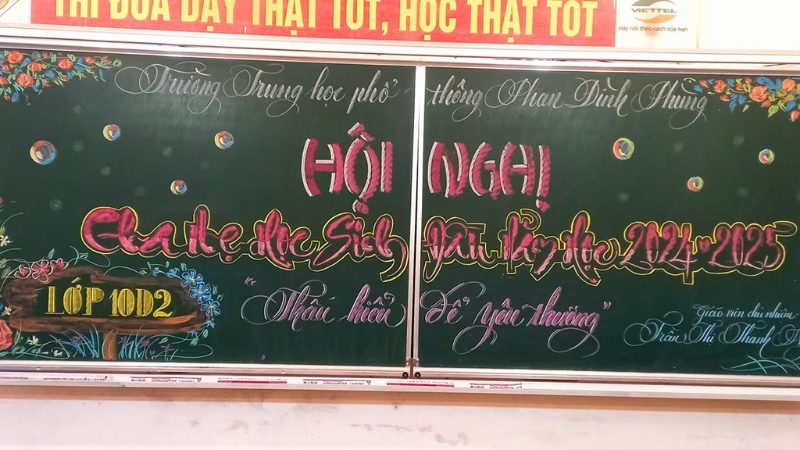 THI ĐUA DẠY THẬT TỐT, HỌC THẬT TỐT
VIETTEL
Hãy nói theo cách của bạn
Trường Trung học phổ thông Phan Đình Phùng
HỘI NGHỊ
Cha Mẹ Học Sinh Đầu Năm Học 2024-2025
LỚP 10D2
"Thấu hiểu Để yêu thương"
Giáo viên chủ nhiệm
Trần Thị Thanh